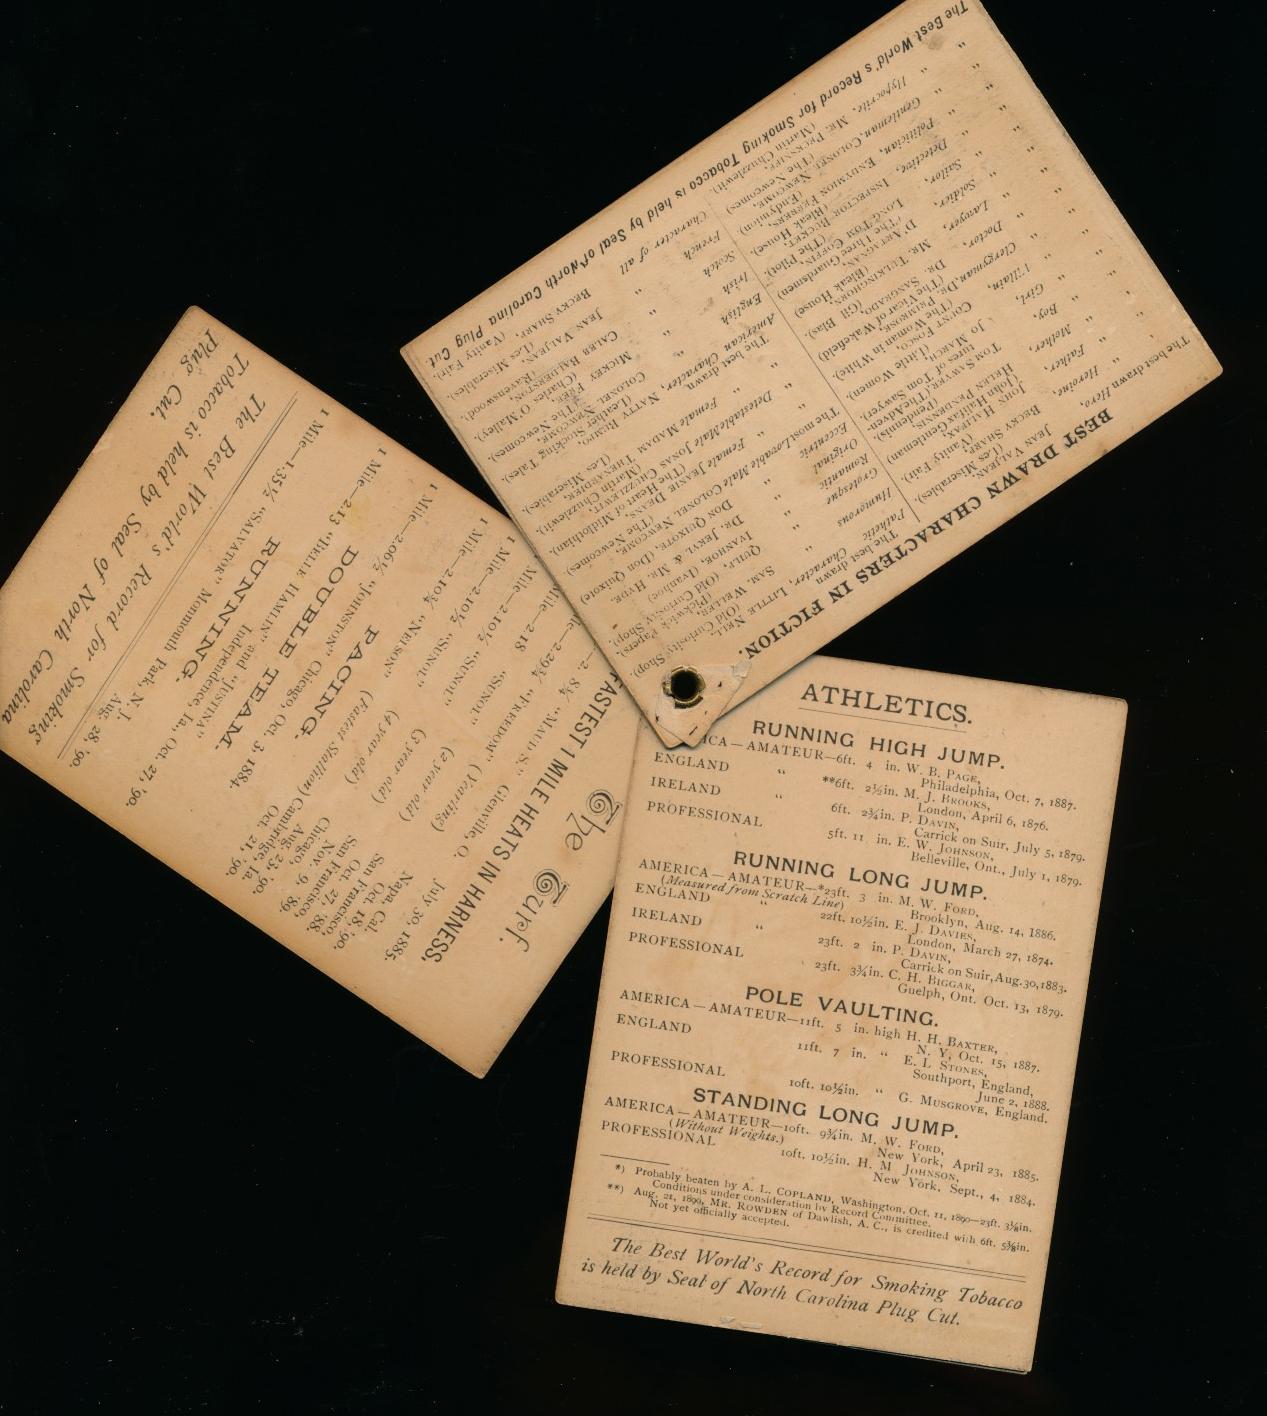 ATHLETICS.
RUNNING HIGH JUMP.
ICA—AMATEUR—6ft. 4 in. W. B. PAGE,
Philadelphia, Oct. 7, 1887.
ENGLAND " **6ft. 2½in. M. J. BROOKS,
London, April 6, 1876.
IRELAND " 6ft. 2¾in. P. DAVIN,
Carrick on Suir, July 5, 1879.
PROFESSIONAL 5ft. 11 in. E. W. JOHNSON,
Belleville, Ont., July 1, 1879.
RUNNING LONG JUMP.
AMERICA—AMATEUR—*23ft. 3 in. M. W. FORD,
(Measured from Scratch Line) Brooklyn, Aug. 14, 1886.
ENGLAND " 22ft. 10½in. E. J. DAVIES,
London, March 27, 1874.
IRELAND " 23ft. 2 in. P. DAVIN,
Carrick on Suir, Aug. 30, 1883.
PROFESSIONAL 23ft. 3¾in. C. H. BIGGAR,
Guelph, Ont. Oct. 13, 1879.
POLE VAULTING.
AMERICA—AMATEUR—11ft. 5 in. high H. H. BAXTER,
N. Y, Oct. 15, 1887.
ENGLAND 11ft. 7 in. " E. L STONES,
Southport, England,
June 2, 1888.
PROFESSIONAL 10ft. 10½in. " G. MUSGROVE, England.
STANDING LONG JUMP.
AMERICA—AMATEUR—10ft. 9¾in. M. W. FORD,
(Without Weights.) New York, April 23, 1885.
PROFESSIONAL 10ft. 10½in. H. M JOHNSON,
New York, Sept., 4, 1884.
*) Probably beaten by A. L. COPLAND, Washington, Oct. 11, 1890—23ft. 3⅛in.
Conditions under consideration by Record Committee.
**) Aug. 21, 1890, MR. ROWDEN of Dawlish, A. C., is credited with 6ft. 5⅜in.
Not yet officially accepted.
The Best World's Record for Smoking Tobacco
is held by Seal of North Carolina Plug Cut.
The Turf.
FASTEST 1 MILE HEATS IN HARNESS,
8¾ "MAUD S." Glenville, O. July 30, 1885.
2.29¼ "FREEDOM" (Yearling) Napa, Cal.
Oct. 18, '90.
Mile—2.18 "SUNOL" (2 year old) San Francisco,
Oct. 27, '88.
1 Mile—2.10½ "SUNOL" (3 year old) San Francisco,
Nov. 9, '89.
1 Mile—2.10½ "SUNOL" (4 year old) Chicago,
Aug. 23, '90.
1 Mile—2.10¾ "NELSON" (Fastest Stallion) Cambridge, Ia.
Oct. 21, '90.
PACING.
1 Mile—2.06¼ "JOHNSTON" Chicago, Oct. 3, 1884.
DOUBLE TEAM.
1 Mile—2.13 "BELLE HAMLIN" and "JUSTINA"
Independence, Ia., Oct. 27, '90.
RUNNING.
1 Mile—1.35½ "SALVATOR" Monmouth Park, N. J.
Aug. 28, '90.
The Best World's Record for Smoking
Tobacco is held by Seal of North Carolina
Plug Cut.
BEST DRAWN CHARACTERS IN FICTION.
The best drawn Hero, JEAN VALJEAN,
(Les Miserables).
" " Heroine, BECKY SHARP
(Vanity Fair).
" " Father, JOHN HALIFAX
(John Halifax Gentleman)
" " Mother, HELEN PENDENNIS
(Pendennis).
" " Boy, TOM SAWYER (The Adven-
tures of Tom Sawyer).
" " Girl, JO MARCH (Little Women).
" " Villain, COUNT FOSCO,
(The Woman in White)
" " Clergyman, DR. PRIMROSE
(The Vicar of Wakefield)
" " Doctor, DR. SANGRADO, (Gil Blas).
" " Lawyer, MR. TULKINGHORN
(Bleak House)
" " Soldier, D'ARTAGNAN,
(The Three Guardsmen)
" " Sailor, LONG TOM COFFIN (The Pilot).
" " Detective, INSPECTOR BUCKET,
(Bleak House).
" " Politician, ENDYMION FERRERS,
(Endymion)
" " Gentleman, COLONEL NEWCOME,
(The Newcomes)
" " Hypocrite, MR. PECKSNIFF,
(Martin Chuzzlewit).
The best drawn
Pathetic Character, LITTLE NELL,
(Old Curiosity Shop).
Humorous " SAM. WELLER,
(Pickwick Papers).
Grotesque " QUILP, (Old Curiosity Shop).
Romantic " IVANHOE, (Ivanhoe)
Original " DR. JEKYL & MR. HYDE.
Eccentric " DON QUIXOTE, (Don Quixote)
The most Lovable Male COLONEL NEWCOME,
(The Newcomes)
" " Female JEANIE DEANS,
(The Heart of Midlothian).
" Detestable Male JONAS CHUZZLEWIT,
(Martin Chuzzlewit).
" " Female MADAM THENARDIER,
(Les Miserables).
The best drawn
American Character, NATTY BUMPO,
(Leather Stocking Tales).
English " COLONEL NEWCOME,
(The Newcomes).
Irish " MICKEY FREE,
(Charles O'Malley).
Scotch " CALEB BALDERSTON,
(Ravenswood).
French " JEAN VALJEAN, (Les Miserables).
Character of all BECKY SHARP, (Vanity Fair).
The Best World's Record for Smoking Tobacco is held by Seal of North Carolina Plug Cut.